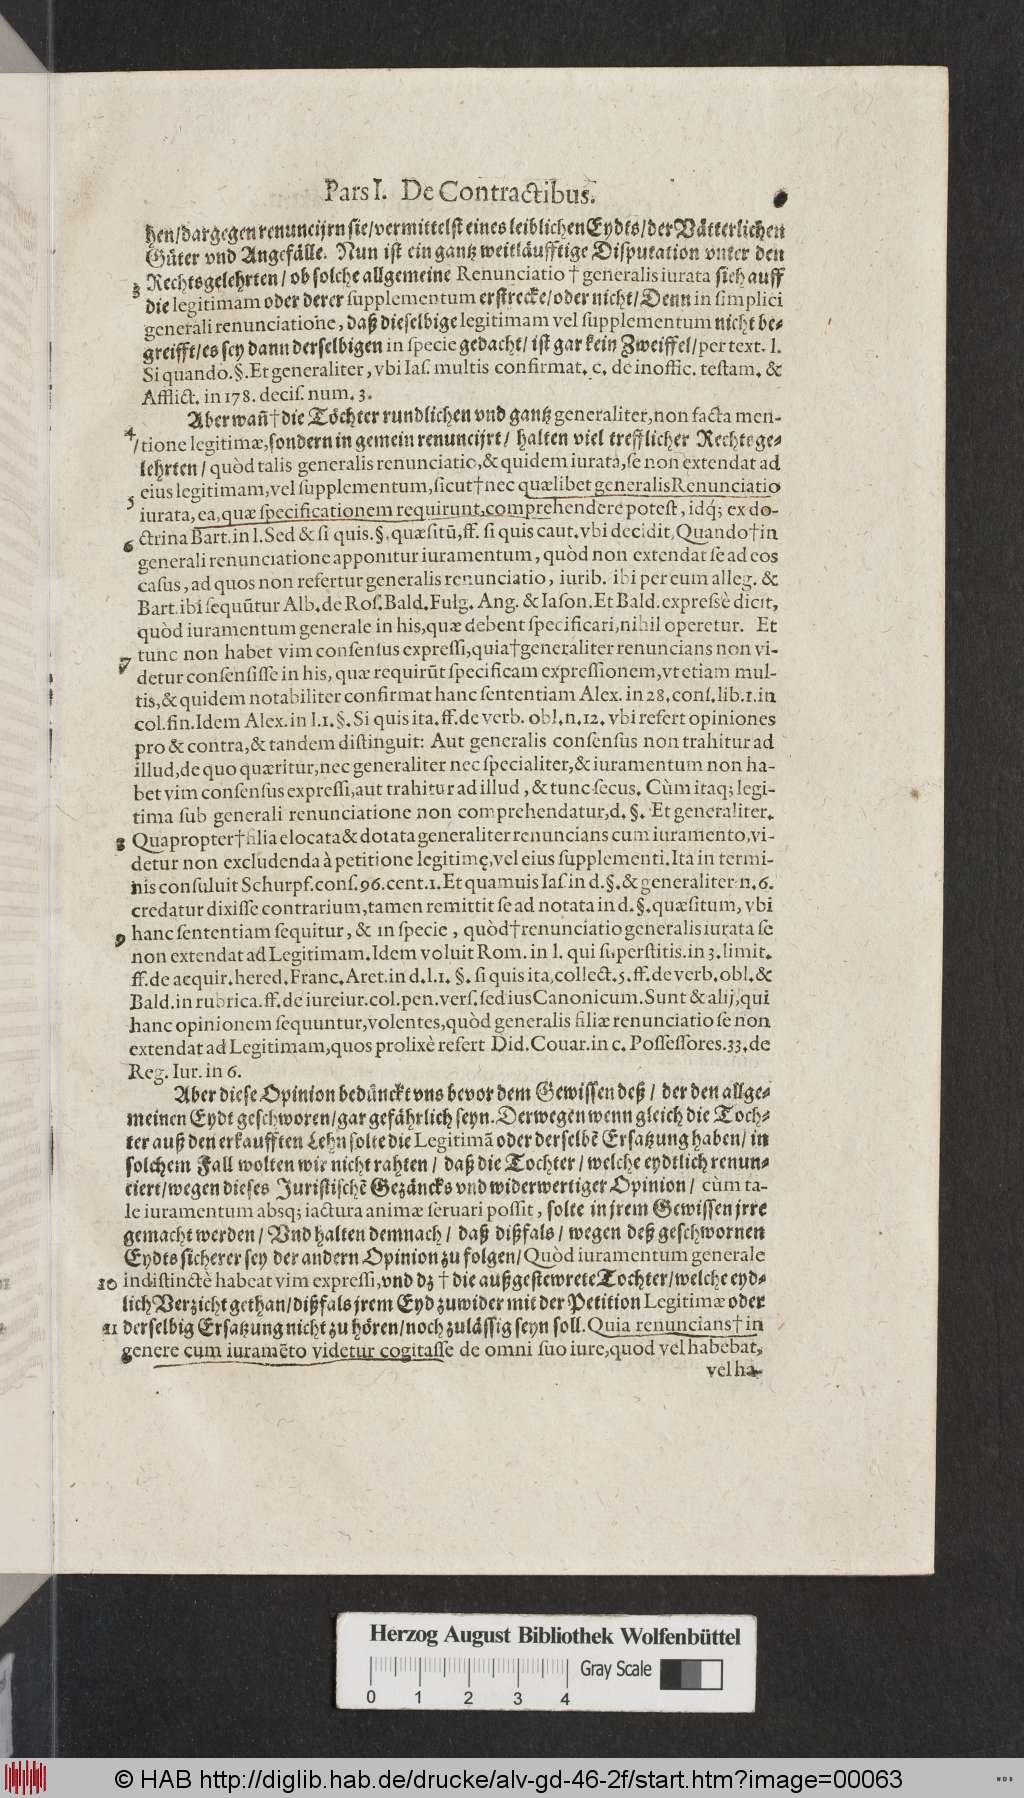 Pars I. De Contractibus.
hen/dargegen renuncijrn sie/vermittelst eines leiblichen Eydts/der Vätterlichen
Güter vnd Angefälle. Nun ist ein gantz weitläufftige Disputation vnter den
Rechtsgelehrten/ ob solche allgemeine Renunciatio † generalis iurata sich auff
3 die legitimam oder derer supplementum erstrecke/oder nicht/Denn in simplici
generali renunciatione, daß dieselbige legitimam vel supplementum nicht be-
greifft/es sey dann derselbigen in specie gedacht/ ist gar kein Zweiffel/per text. l.
Si quando.§.Et generaliter, vbi Ias. multis confirmat. c. de inoffic. testam. &
Afflict. in 178. decis. num. 3.
Aber wañ†die Töchter rundlichen vnd gantz generaliter,non facta men-
4 tione legitimæ,sondern in gemein renuncijrt/ halten viel trefflicher Rechtsge-
lehrten/ quòd talis generalis renunciatio,& quidem iurata,se non extendat ad
eius legitimam,vel supplementum,sicut†nec quælibet generalis Renunciatio
5 iurata, ea,quæ specificationem requirunt,comprehendere potest, idq́; ex do-
ctrina Bart. in l.Sed & si quis.§.quæsitũ,ff. si quis caut.vbi decidit,Quando†in
6 generali renunciatione apponitur iuramentum, quòd non extendat se ad eos
casus, ad quos non refertur generalis renunciatio, iurib. ibi per eum alleg. &
Bart.ibi sequũtur Alb.de Ros.Bald.Fulg. Ang. & Iason.Et Bald.expressè dicit,
quòd iuramentum generale in his,quæ debent specificari,nihil operetur. Et
7 tunc non habet vim consensus expressi,quia†generaliter renuncians non vi-
detur consensisse in his, quæ requirũt specificam expressionem,vt etiam mul-
tis,& quidem notabiliter confirmat hanc sententiam Alex. in 28.cons.lib.1.in
col.fin.Idem Alex.in l.1.§.Si quis ita.ff.de verb. obl.n.12. vbi refert opiniones
pro & contra,& tandem distinguit: Aut generalis consensus non trahitur ad
illud,de quo quæritur,nec generaliter nec specialiter,& iuramentum non ha-
bet vim consensus expressi,aut trahitur ad illud , & tunc secus. Cùm itaq; legi-
tima sub generali renunciatione non comprehendatur,d. §. Et generaliter.
8 Quapropter†filia elocata & dotata generaliter renuncians cum iuramento,vi-
detur non excludenda à petitione legitimę,vel eius supplementi.Ita in termi-
nis consuluit Schurpf.cons.96.cent.1.Et quamuis Ias.in d.§.& generaliter.n.6.
credatur dixisse contrarium,tamen remittit se ad notata in d.§.quæsitum, vbi
9 hanc sententiam sequitur, & in specie , quòd†renunciatio generalis iurata se
non extendat ad Legitimam.Idem voluit Rom. in l. qui superstitis.in 3.limit.
ff.de acquir.hered.Franc.Aret.in d.l.1. §. si quis ita,collect.5.ff.de verb.obl.&
Bald.in rubrica.ff.de iureiur.col.pen.vers.sed ius Canonicum.Sunt & alij,qui
hanc opinionem sequuntur,volentes,quòd generalis filiæ renunciatio se non
extendat ad Legitimam,quos prolixè refert Did.Couar.in c. Possessores.33.de
Reg. Iur. in 6.
Aber diese Opinion bedünckt vns bevor dem Gewissen deß/ der den allge-
meinen Eydt geschworen/gar gefährlich seyn.Derwegen wenn gleich die Toch-
ter auß den erkaufften Lehn solte die Legitimã oder derselbẽ Ersatzung haben/ in
solchem Fall wolten wir nicht rahten/ daß die Tochter/ welche eydtlich renun-
tiert/wegen dieses Juristischẽ Gezäncks vnd widerwertiger Opinion/ cùm ta-
le iuramentum absq; iactura animæ seruari possit, solte in jrem Gewissen jrre
gemacht werden/ Vnd halten demnach/ daß dißfals/ wegen deß geschwornen
Eydts sicherer sey der andern Opinion zu folgen/ Quòd iuramentum generale
10 indistinctè habeat vim expressi,vnd dz † die außgestewrete Tochter/welche eyd-
lich Verzicht gethan/dißfals jrem Eyd zuwider mit der Petition Legitimæ oder
11 derselbig Ersatzung nicht zu hören/noch zulässig seyn soll.Quia renuncians† in
genere cum iuramẽto videtur cogitasse de omni suo iure,quod vel habebat,
vel ha-
Herzog August Bibliothek Wolfenbüttel
Gray Scale
0 1 2 3 4
© HAB http://diglib.hab.de/drucke/alv-gd-46-2f/start.htm?image=00063